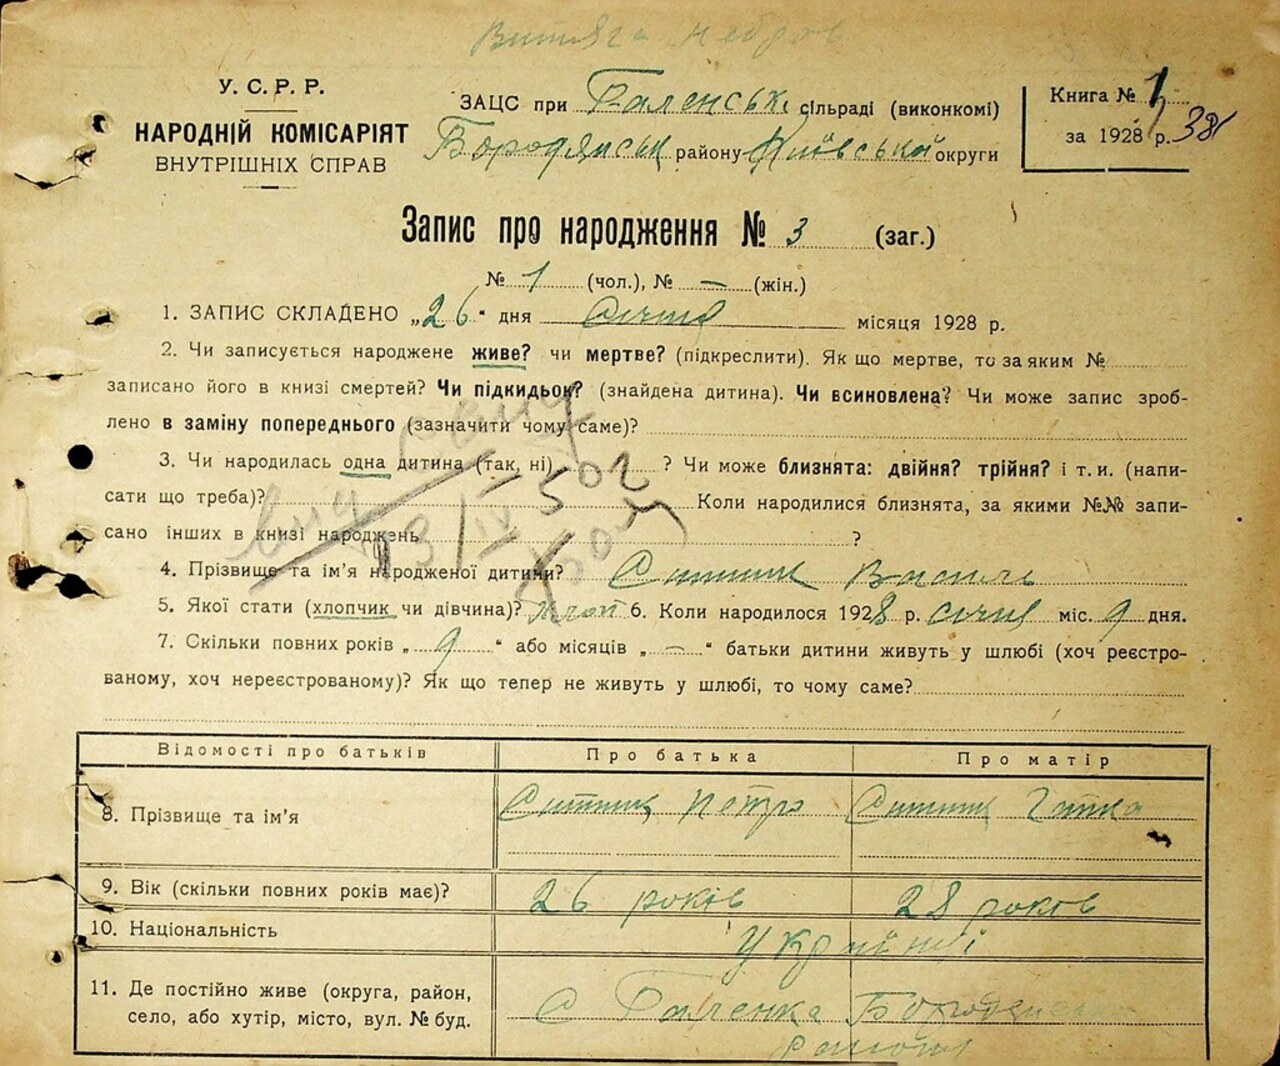 У. С. Р. Р.
НАРОДНІЙ КОМІСАРІЯТ
ВНУТРІШНІХ СПРАВ
ЗАЦС при сільраді (виконкомі)
Бородянськ району Київської округи
Книга № 1
за 1928 р. 38
Запис про народження № 3 (заг.)
№ 1 (чол.), № — (жін.)
1. ЗАПИС СКЛАДЕНО „26“ дня Січня місяця 1928 р.
2. Чи записується народжене живе? чи мертве? (підкреслити). Як що мертве, то за яким №
записано його в книзі смертей? Чи підкидьок? (знайдена дитина). Чи всиновлена? Чи може запис зроб-
лено в заміну попереднього (зазначити чому саме)?
3. Чи народилась одна дитина (так, ні) ? Чи може близнята: двійня? трійня? і т. и. (напи-
сати що треба)? Коли народилися близнята, за якими №№ запи-
сано інших в книзі народжень ?
4. Прізвище та ім'я народженої дитини? Ситник Василь
5. Якої стати (хлопчик чи дівчина)? хлоп 6. Коли народилося 1928 р. січня міс. 9 дня.
7. Скільки повних років „ 9 “ або місяців „ — “ батьки дитини живуть у шлюбі (хоч реєстро-
ваному, хоч нереєстрованому)? Як що тепер не живуть у шлюбі, то чому саме?
Відомості про батьків Про батька Про матір
8. Прізвище та ім'я Ситник Петро Ситник
9. Вік (скільки повних років має)? 26 років 28 років
10. Національність Українці
11. Де постійно живе (округа, район,
село, або хутір, місто, вул. № буд. С Бородянськ
району